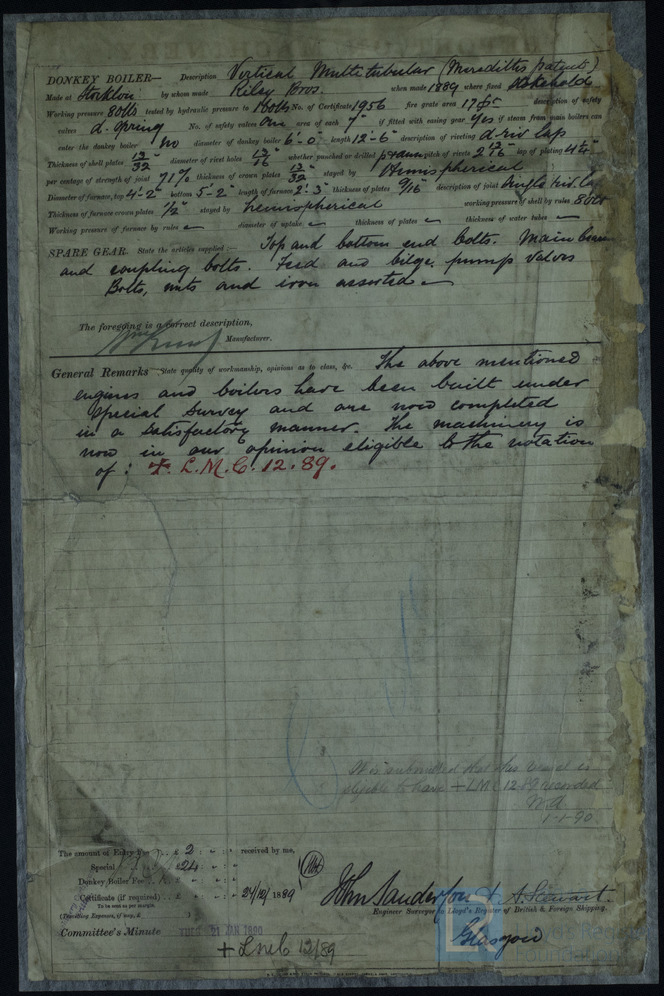 DONKEY BOILER— Description Vertical Multitubular (Meredith's patents)
Made at Stockton by whom made Riley Bros. when made 1889 where fixed Stokehold
Working pressure 80lbs tested by hydraulic pressure to 160lbs No. of Certificate 1956 fire grate area 17 description of safety
valves d. spring No. of safety valves One area of each 7" if fitted with easing gear yes if steam from main boilers can
enter the donkey boiler no diameter of donkey boiler 6'-0" length 12'-6" description of riveting d riv lap
Thickness of shell plates 13/32 diameter of rivet holes 13/16 whether punched or drilled pitch of rivets lap of plating
per centage of strength of joint 71% thickness of crown plates 13/32 stayed by Hemispherical
Diameter of furnace, top 4'-2" bottom 5'-2" length of furnace 2'-3" thickness of plates 9/16 description of joint Single riv. lap
Thickness of furnace crown plates 1/2" stayed by hemispherical working pressure of shell by rules 80lbs
Working pressure of furnace by rules diameter of uptake thickness of plates thickness of water tubes
SPARE GEAR. State the articles supplied:— Top and bottom end bolts. Main
and coupling bolts. Feed and bilge pump valves
Bolts, nuts and iron assorted
The foregoing is a correct description,
Manufacturer.
General Remarks State quality of workmanship, opinions as to class, &c. The above mentioned
engines and boilers have been built under
Special Survey and are now completed
in a satisfactory manner. The machinery is
now in our opinion eligible to the notation
of: + L.M.C. 12.89.
It is submitted that this vessel is
eligible to have + LMC 12.89 recorded
1-1-90
The amount of Entry Fee £ 2 received by me,
Special £ 24
Donkey Boiler Fee £
Certificate (if required) £ 24/12/1889
To be sent as per margin.
(Travelling Expenses, if any, £ )
John Sanderson & A. Stewart.
Engineer Surveyor to Lloyd's Register of British & Foreign Shipping.
Committee's Minute TUES 21 JAN 1890
Glasgow
+ LMC 12/89
Foundation